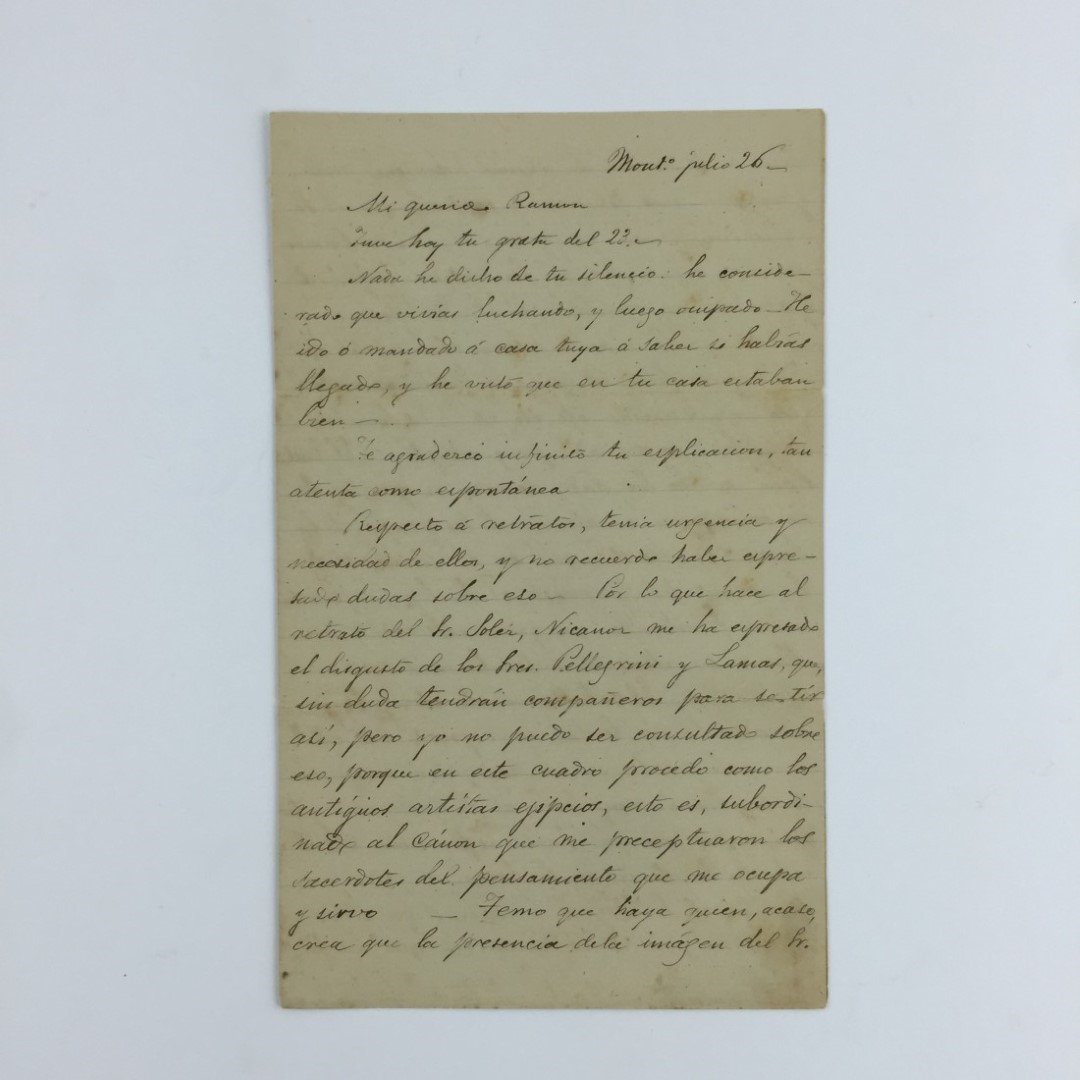 Mont.º julio 26_
Mi querido Ramon
Tuve hoy tu grata del 23._
Nada he dicho de tu silencio: he conside-
rado que vivias luchando, y luego ocupado_ He
ido ó mandado á casa tuya á saber si habias
llegado, y he visto que en tu casa estaban
bien_
Te agradezco infinito tu esplicacion, tan
atenta como espontánea
Respecto á retratos, tenia urgencia y
necesidad de ellos, y no recuerdo haber espre-
sado dudas sobre eso_ Por lo que hace al
retrato del Sr. Soler, Nicanor me ha espresado
el disgusto de los Sres. Pellegrini y Lamas, que,
sin duda tendrán compañeros para
así, pero yo no puedo ser consultado sobre
eso, porque en este cuadro procedo como los
antiguos artistas ejipcios, esto es, subordi-
nado al Cánon que me preceptuaron los
sacerdotes del pensamiento que me ocupa
y sirvo _ Temo que haya quien, acaso,
crea que la presencia de la imágen del Sr.